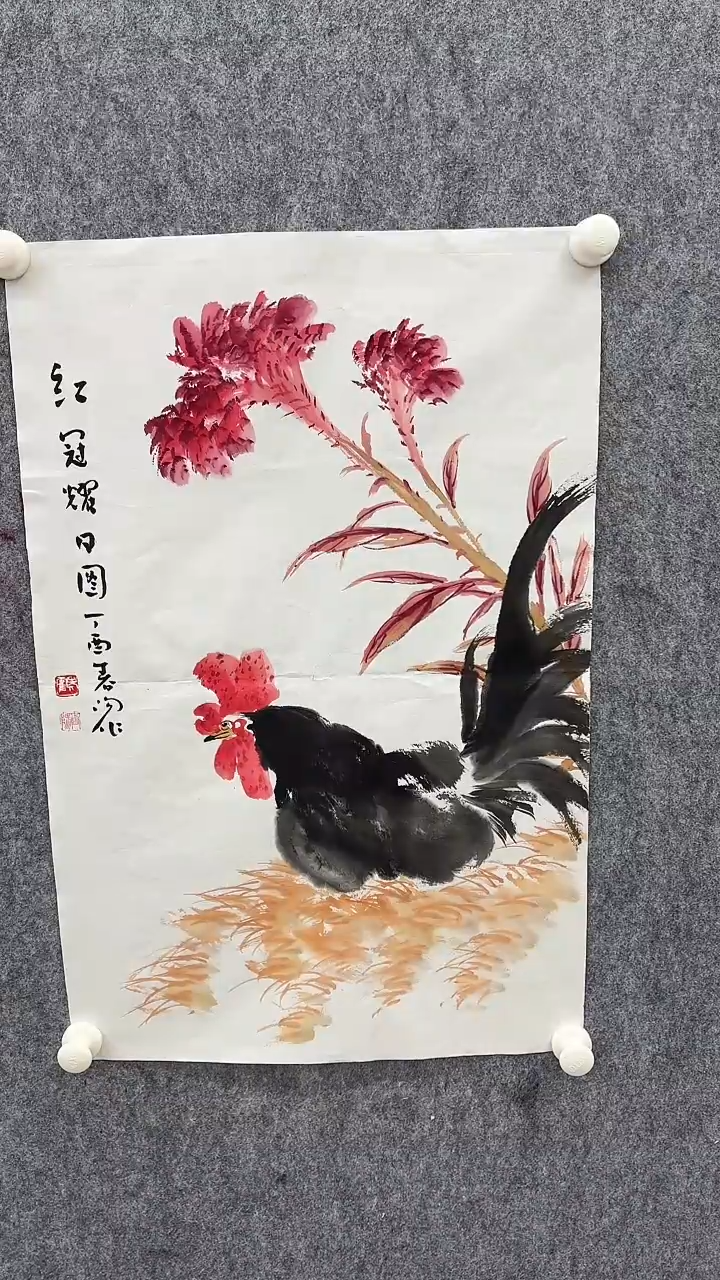 红冠耀日图
丁酉春